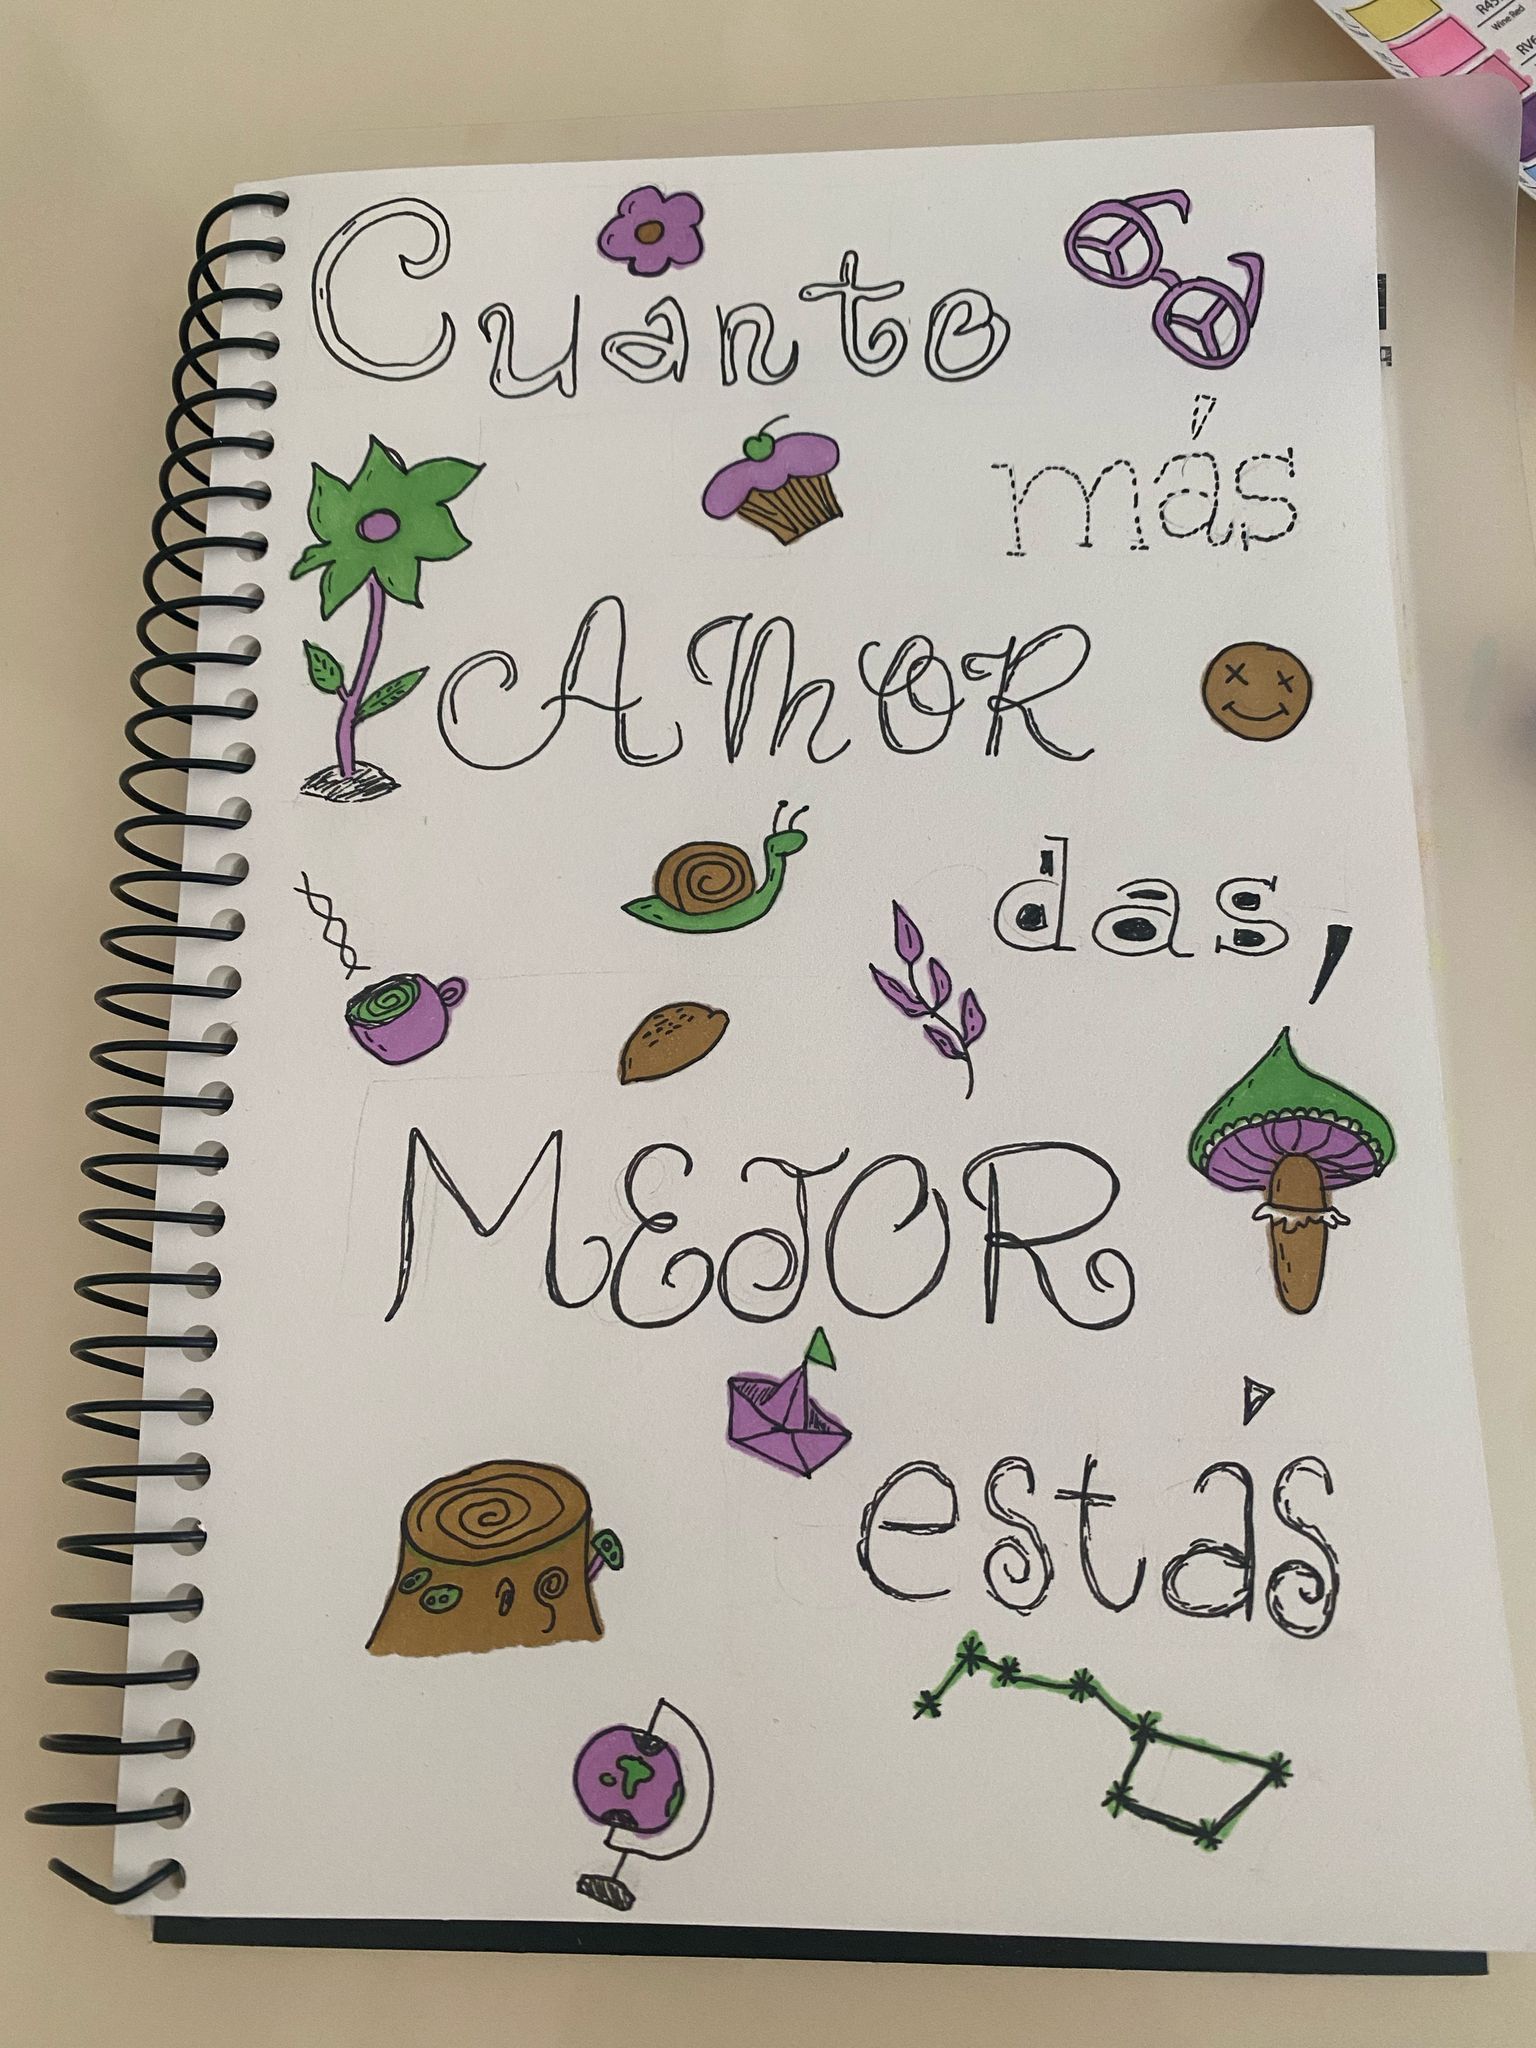 Cuanto
más
AMOR
das,
MEJOR
estás
Wine Red